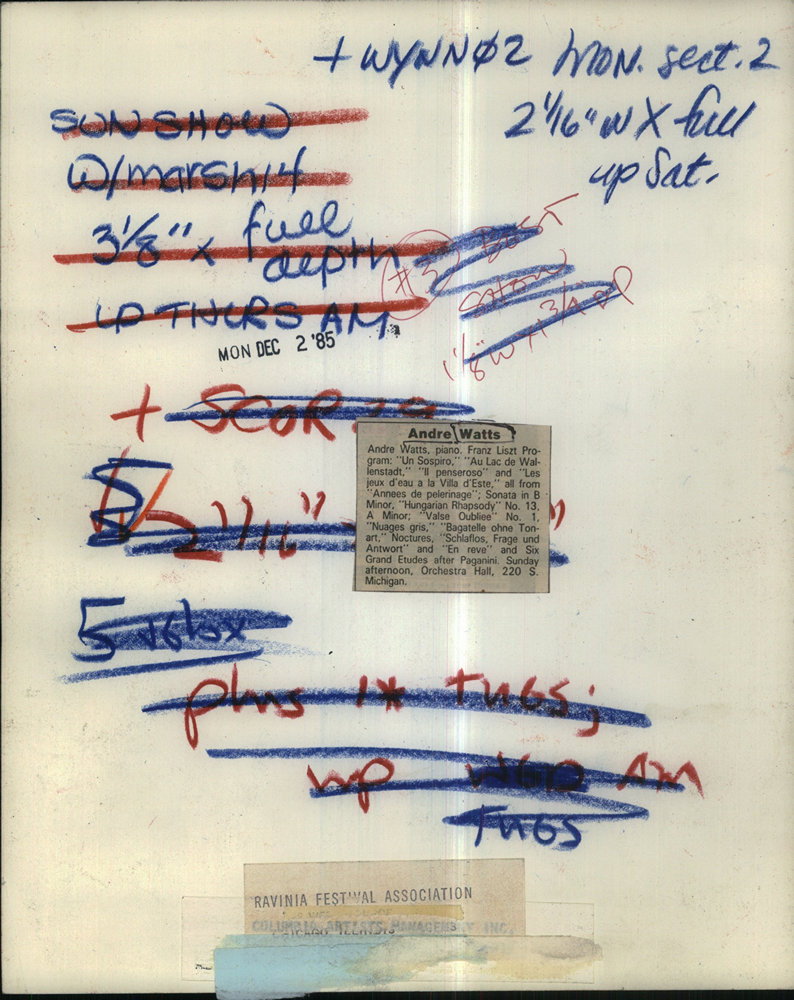 + WYNNØ2 MON. sect. 2
2 1/16" W X full
up Sat.
SUN SHOW
W/marsh14
3 1/8" x full
depth
UP THURS AM
#3 BEST
SHOW
1 1/8" W x 3/4 DP
MON DEC 2 '85
+ SCOR
2 1/16"
Andre Watts
Andre Watts, piano. Franz Liszt Pro-
gram: "Un Sospiro," "Au Lac de Wal-
lenstadt," "Il penseroso" and "Les
jeux d'eau a la Villa d'Este," all from
"Annees de pelerinage"; Sonata in B
Minor, "Hungarian Rhapsody" No. 13,
A Minor; "Valse Oubliee" No. 1,
"Nuages gris," "Bagatelle ohne Ton-
art," Noctures, "Schlaflos, Frage und
Antwort" and "En reve" and Six
Grand Etudes after Paganini. Sunday
afternoon, Orchestra Hall, 220 S.
Michigan.
5 velox
plus 1* TUES;
up WED AM
TUES
RAVINIA FESTIVAL ASSOCIATION
COLUMBIA ARTISTS MANAGEMENT INC.
CHICAGO, ILLINOIS